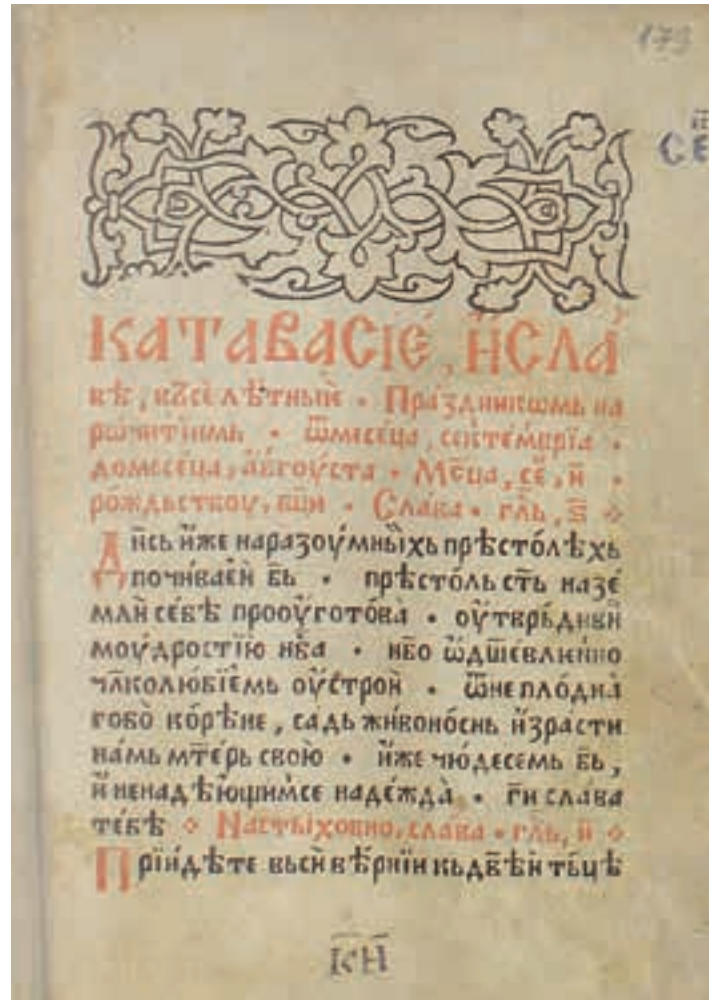 179
СЕ
КАТАВАСІЕ, И҆СЛА
вѣ, въсѐ лѣтныѥ • Пра́здникѡмь на
рѡчитіимь • Ѿмесеца, сектемврїа •
домесеца, а҆́вгоуста • Мс҃ца, се҃, и҃ •
ро́ждьствоу, бц҃и • Слава • гл҃ь, ѕ҃
Дн҃сь и҆́же наразоу́мныхь прѣсто́лѣхь
почи́ваѐи бь҃ • прѣсто́ль ст҃ь назе́
мли се́бѣ прооу҆гото́ва • оу҆твръ́дивыи
моу́дростїю нб҃са • нб҃о ѡ҆дш҃евлкнно
чл҃колю́бїемь оу҆́строи • ѿнепло́дна
гобо̀ ко́рѣне, садь жи́воно́снь и҆зрасти
намь мт҃ерь свою • и҆́же чю́десемь бь҃,
и҆ ненадѣ́ющимсе наде́жда • г҃и слава
те́бѣ Настыховно, слава • гл҃ь, и҃
Прїи́дѣте вьси́ вѣ́рнїи кьдв҃ѣи ть́цѣ
КН